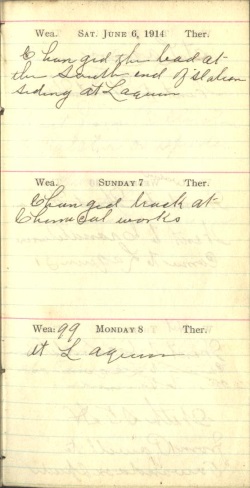 Wea. SAT. JUNE 6, 1914 Ther.
Changed the lead at
the South end of station
siding at Laquin
Wea. SUNDAY 7 Ther.
Changed track at
Chemical works
Wea. 99 MONDAY 8 Ther.
at Laquin